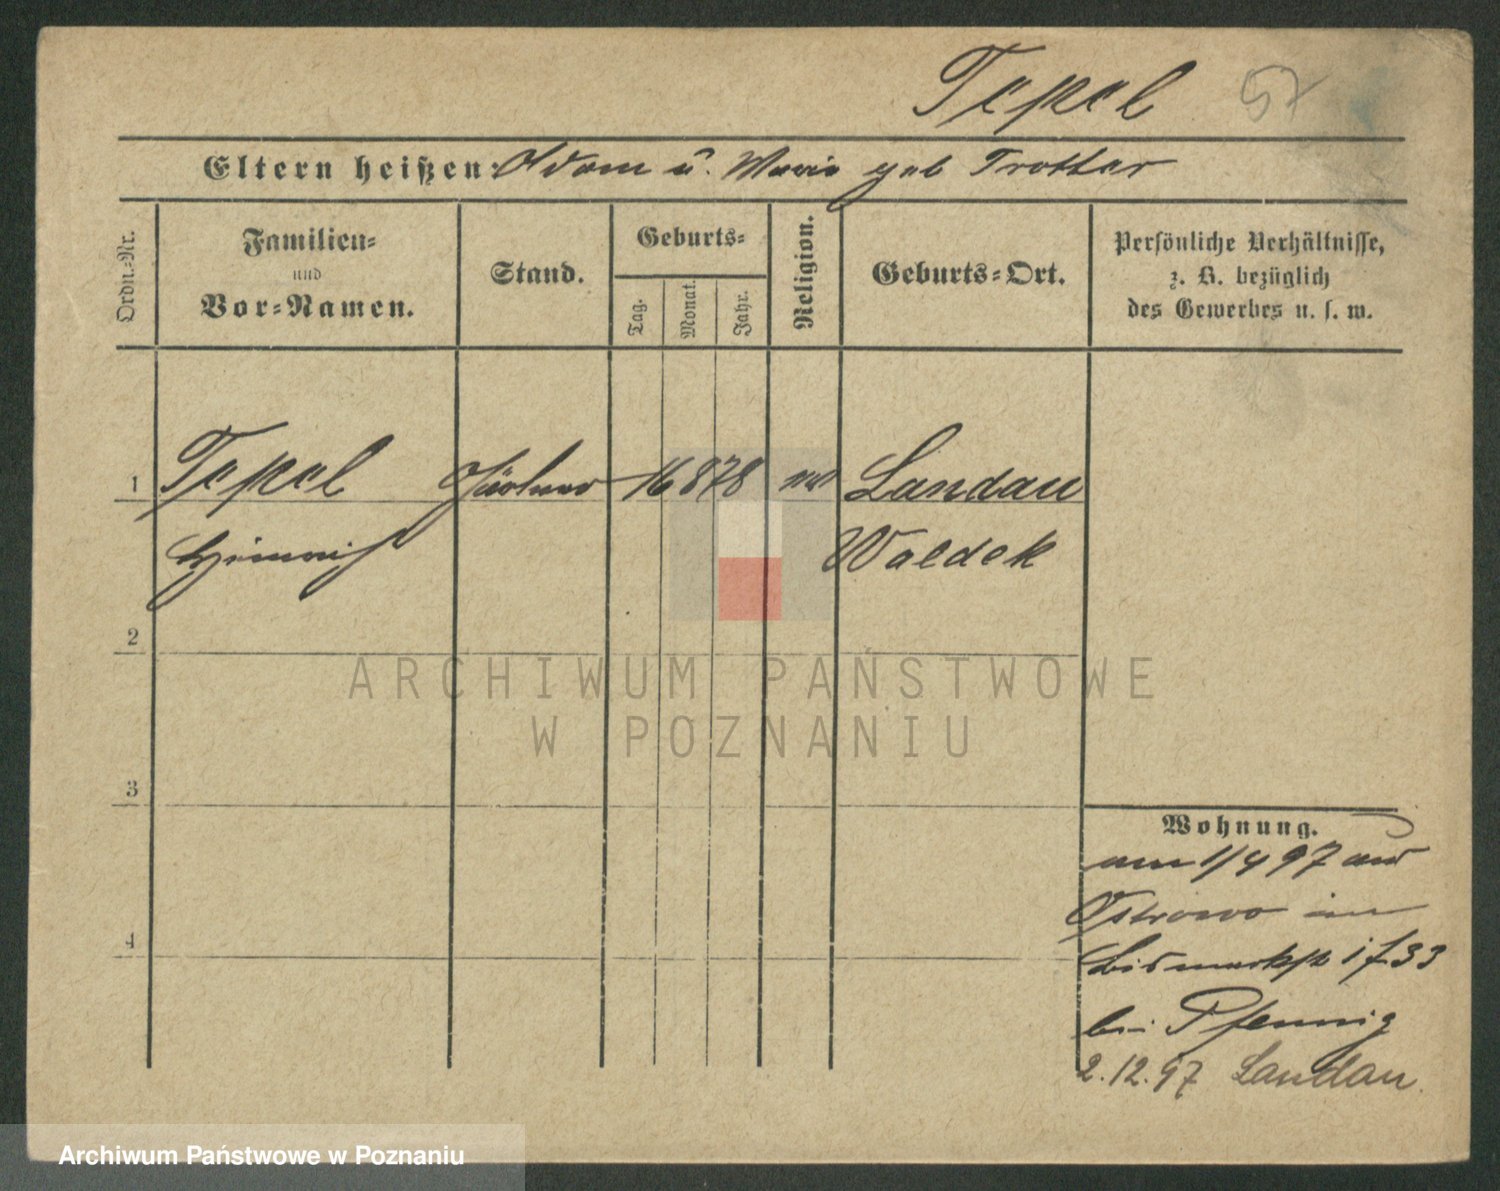 Tepel 57
Eltern heißen: Adam u. Marie geb Trotter
Ordn.-Nr.
Familien-
und
Vor-Namen.
Stand.
Geburts-
Tag.
Monat.
Jahr.
Religion.
Geburts-Ort.
Persönliche Verhältnisse,
z. B. bezüglich
des Gewerbes u. s. w.
1 Tepel 16 8 78 Landau
Heinrich Waldek
2
3
4
Wohnung.
am 1/4 97 aus
Ostrowo in
Bismarkstr 33
bei Pfennig
2.12.97 Landau
ARCHIWUM PAŃSTWOWE
W POZNANIU
Archiwum Państwowe w Poznaniu